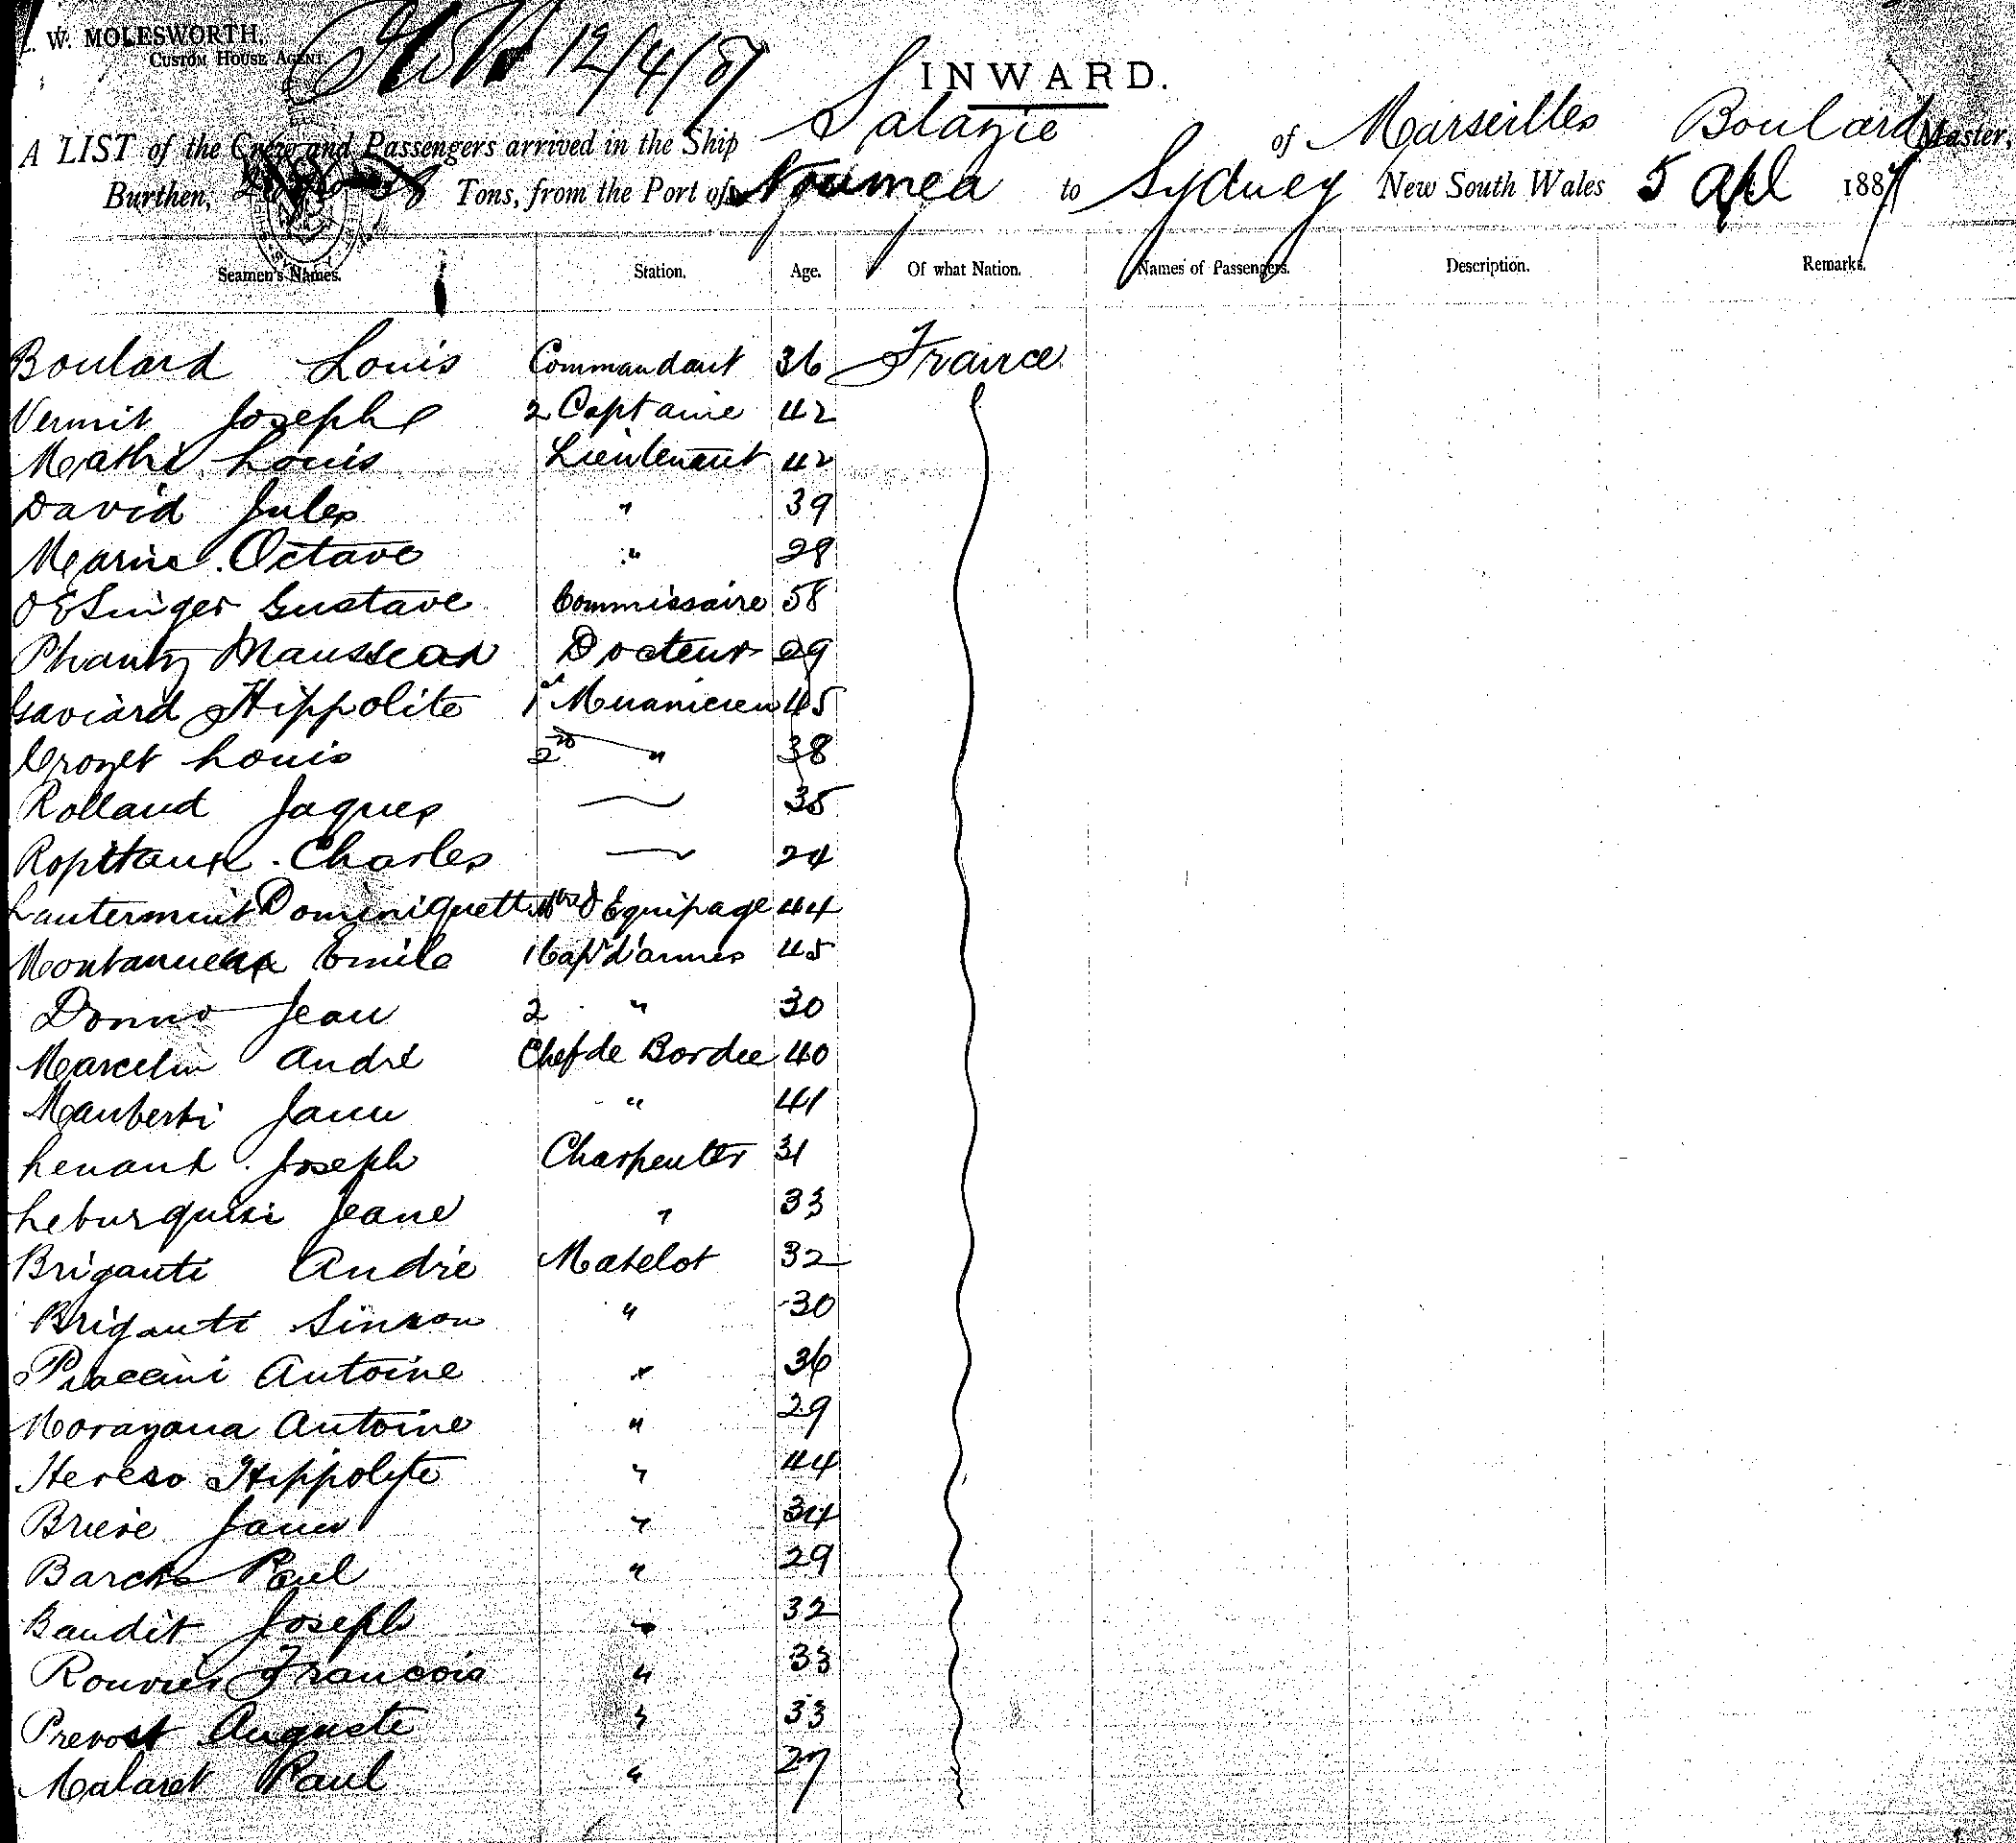 W. MOLESWORTH,
CUSTOM HOUSE AGENT.
12/4/87
INWARD.
A LIST of the Crew and Passengers arrived in the Ship Salazie of Marseilles Boulard Master,
Burthen, Tons, from the Port of Noumea to Sydney New South Wales 5 Apl 1887
Seamen's Names. Station. Age. Of what Nation. Names of Passengers. Description. Remarks.
Boulard Louis Commandant 36 France
Vermit Joseph 2 Captaine 42
Mathi Louis Lieutenant 42
David Jules " 39
Marin Octave " 28
Gustave Commissaire 58
Docteur 29
Gaviard Hippolite 1st 45
Crozet Louis 2nd " 38
Rolland Jaques 35
Ropitaux Charles 24
Equipage 44
Emile 1 Capt d'armes 45
Donno Jean 2 " 30
Marcelin André Chef de Bordee 40
Mauberti " 41
Lenant Joseph Charpenter 31
Jeane " 33
Briganti Andrie Matelot 32
Briganti Simon " 30
Antoine " 36
Morazana Antoine " 29
Hippolyte " 44
Briere " 34
Paul " 29
Baudit Joseph " 32
Rouvier Francois " 33
Prevost Auguste " 33
Malaret Paul " 27